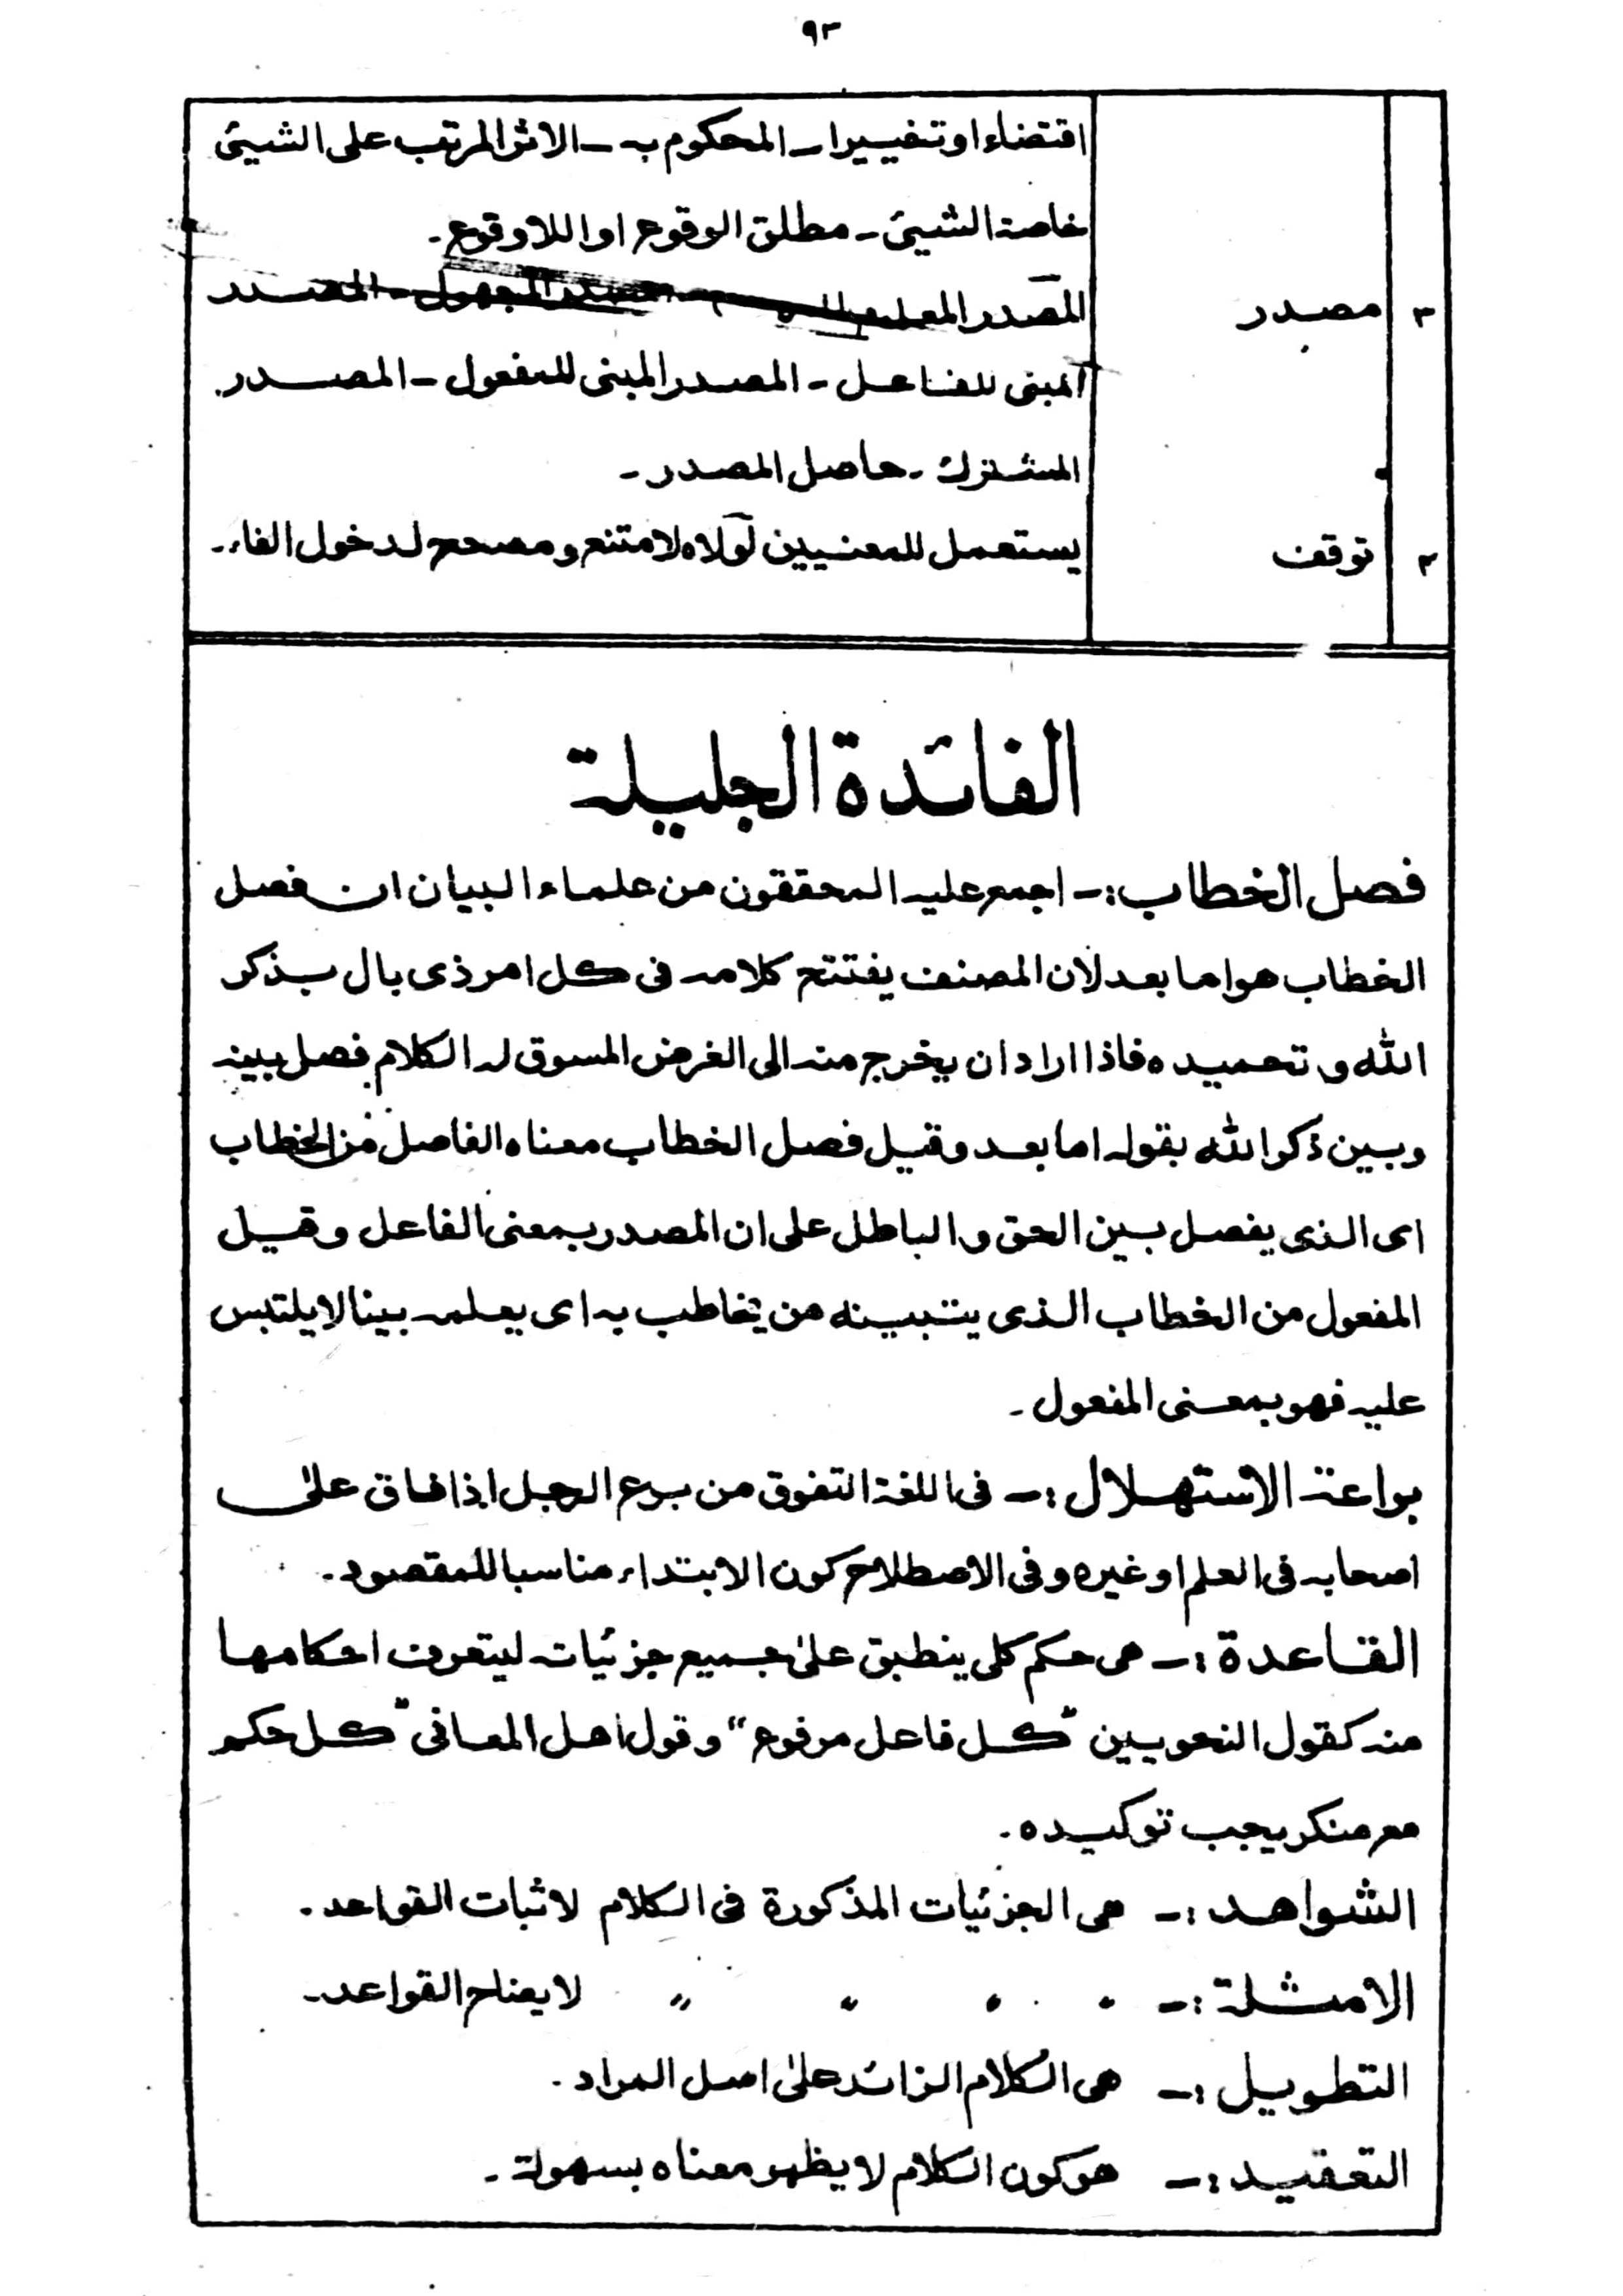 ٩٣
اقتضاء او تخييرا ـ المحكوم به ـ الاثر المرتب على الشيئ
خاصة الشيئ ـ مطلق الوقوع او اللاوقوع ـ
٣ مصدر المصدر المعلوم المجهول ـ المصدر
المبنى للفاعل ـ المصدر المبنى للمفعول ـ المصدر
المشترك ـ حاصل المصدر ـ
٤ توقف يستعمل للمعنيين لولاه لامتنع ومصحح لدخول الفاء ـ
الفائدة الجليلة
فصل الخطاب :ـ اجمع عليه المحققون من علماء البيان ان فصل
الخطاب هو اما بعد لان المصنف يفتتح كلامه فى كل امر ذى بال بذكر
الله و تحميده فاذا اراد ان يخرج منه الى الغرض المسوق له الكلام فصل بينه
وبين ذكر الله بقوله اما بعد وقيل فصل الخطاب معناه الفاصل من الخطاب
اى الذى يفصل بين الحق والباطل على ان المصدر بمعنى الفاعل وقيل
المفعول من الخطاب الذى يتبينه من يخاطب به اى يعلمه بينا لا يلتبس
عليه فهو بمعنى المفعول ـ
براعة الاستهلال :ـ فى اللغة التفوق من برع الرجل اذا فاق على
اصحابه فى العلم او غيره وفى الاصطلاح كون الابتداء مناسبا للمقصود ـ
القاعدة :ـ هى حكم كلى ينطبق على جميع جزئياته ليتعرف احكامها
منه كقول النحويين "كل فاعل مرفوع" وقول اهل المعانى "كل حكم
مع منكر يجب توكيده ـ
الشواهد :ـ هى الجزئيات المذكورة فى الكلام لاثبات القواعد ـ
الامثلة :ـ " " " " لايضاح القواعد ـ
التطويل :ـ هى الكلام الزائد على اصل المراد ـ
التعقيد :ـ هو كون الكلام لا يظهر معناه بسهولة ـ